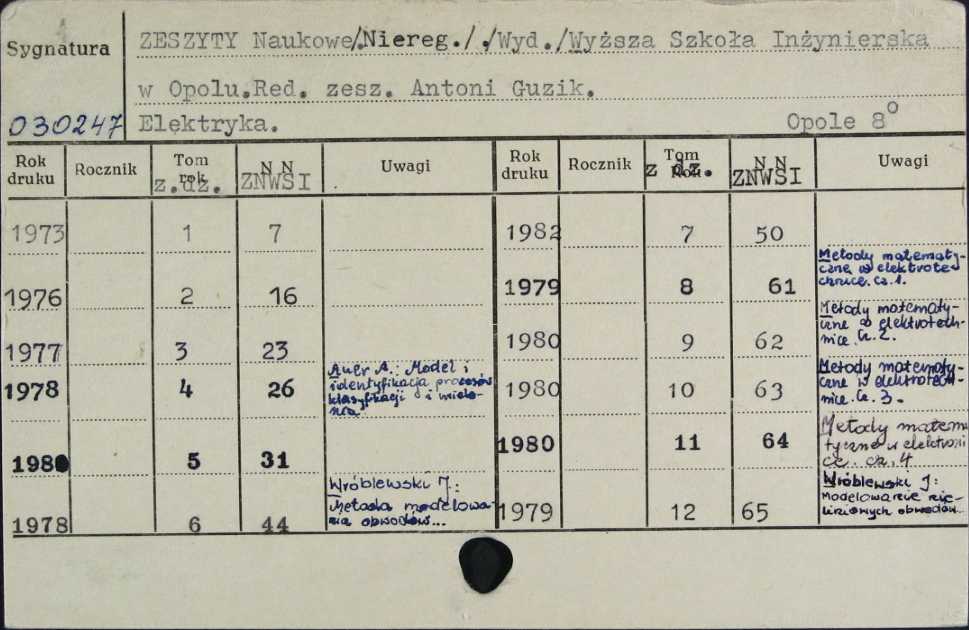 Sygnatura
ZESZYTY Naukowe/Niereg././Wyd./Wyższa Szkoła Inżynierska
w Opolu.Red. zesz. Antoni Guzik.
030247 Elektryka. Opole 8°
Rok druku Rocznik Tom rok z.dz. NN ZNWSI Uwagi Rok druku Rocznik Tom Rok z dz. NN ZNWSI Uwagi
1973 1 7
1982 7 50
1976 2 16
1979 8 61 Metody matematy-
czne w elektrote
chnice. cz.1.
1977 3 23
1980 9 62 Metody matematy-
czne w elektrotech-
nice. Cz. 2.
1978 4 26 Auer A.: Model i
identyfikacja procesów
klasyfikacji i miele-
nia
1980 10 63 Metody matematy-
czne w elektrotech-
nice. Cz. 3.
1980 5 31
1980 11 64 Metody matema
tyczne w
ce. cz. 4
1978 6 44 Wróblewski J.:
Metoda modelowa-
nia obwodów...
1979 12 65 Wróblewski J:
Modelowanie nie-
liniowych obwodów...